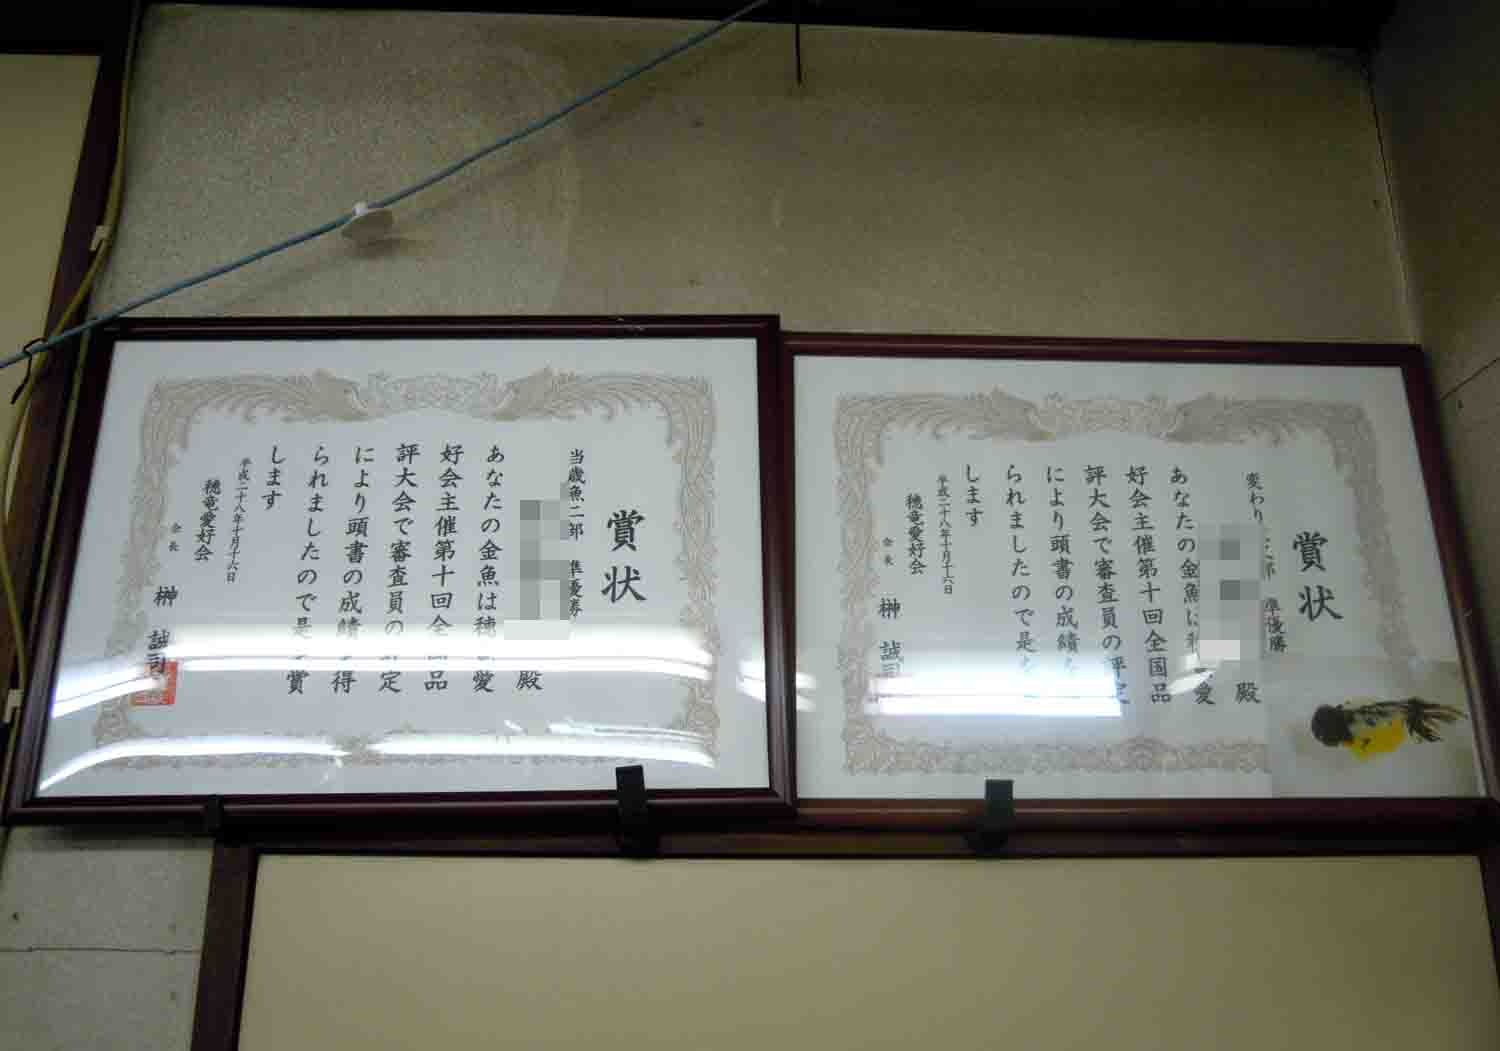 賞状
当歳魚二部 準優勝
殿
あなたの金魚は穂 愛
好会主催第十回全国品
評大会で審査員の 定
により頭書の成績 得
られましたので是 賞
します
平成二十八年十月十六日
穂竜愛好会
会長 榊 誠司
賞状
変わり 部 準優勝
殿
あなたの金魚は 愛
好会主催第十回全国品
評大会で審査員の評定
により頭書の成績を
られましたので是
します
平成二十八年十月十六日
穂竜愛好会
会長 榊 誠司